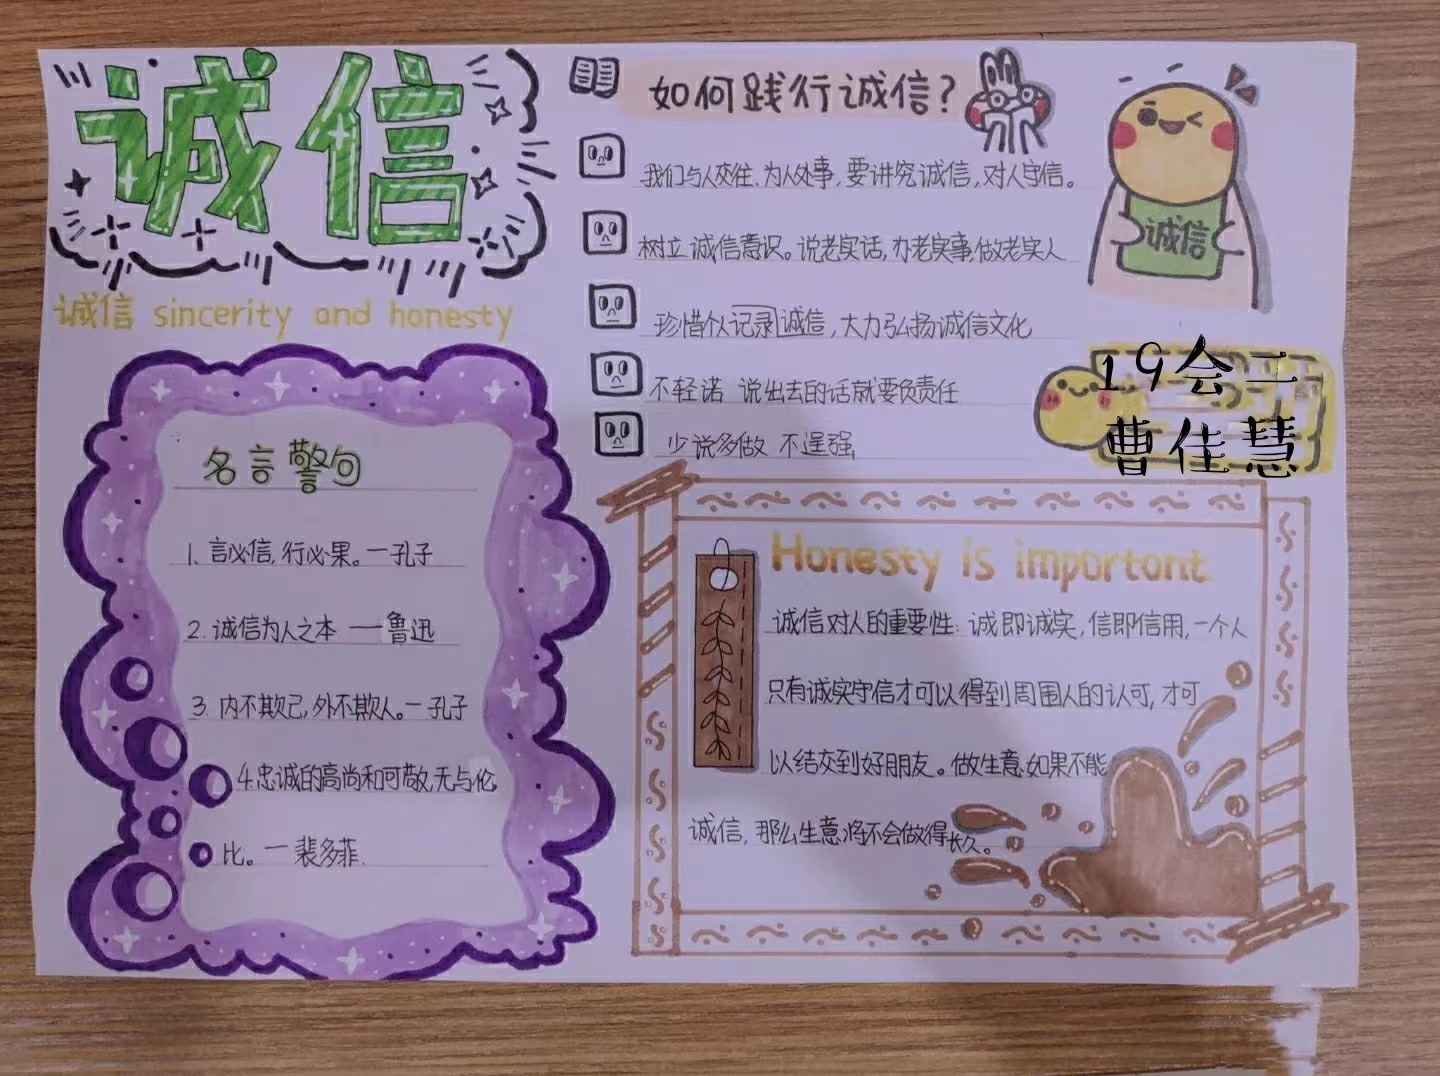 诚信
诚信 sincerity and honesty
名言警句
1. 言必信,行必果。一孔子
2. 诚信为人之本 一鲁迅
3. 内不欺己,外不欺人。一孔子
4.忠诚的高尚和可敬,无与伦
比。一裴多菲.
如何践行诚信?
我们与人交往、为人处事,要讲究诚信,对人守信。
树立诚信意识。说老实话,办老实事,做老实人
珍惜个人记录诚信,大力弘扬诚信文化
不轻诺 说出去的话就要负责任
少说多做 不逞强
诚信
19会二
曹佳慧
Honesty is important
诚信对人的重要性:诚即诚实,信即信用,一个人
只有诚实守信才可以得到周围人的认可,才可
以结交到好朋友。做生意如果不能
诚信,那么生意将不会做得长久。